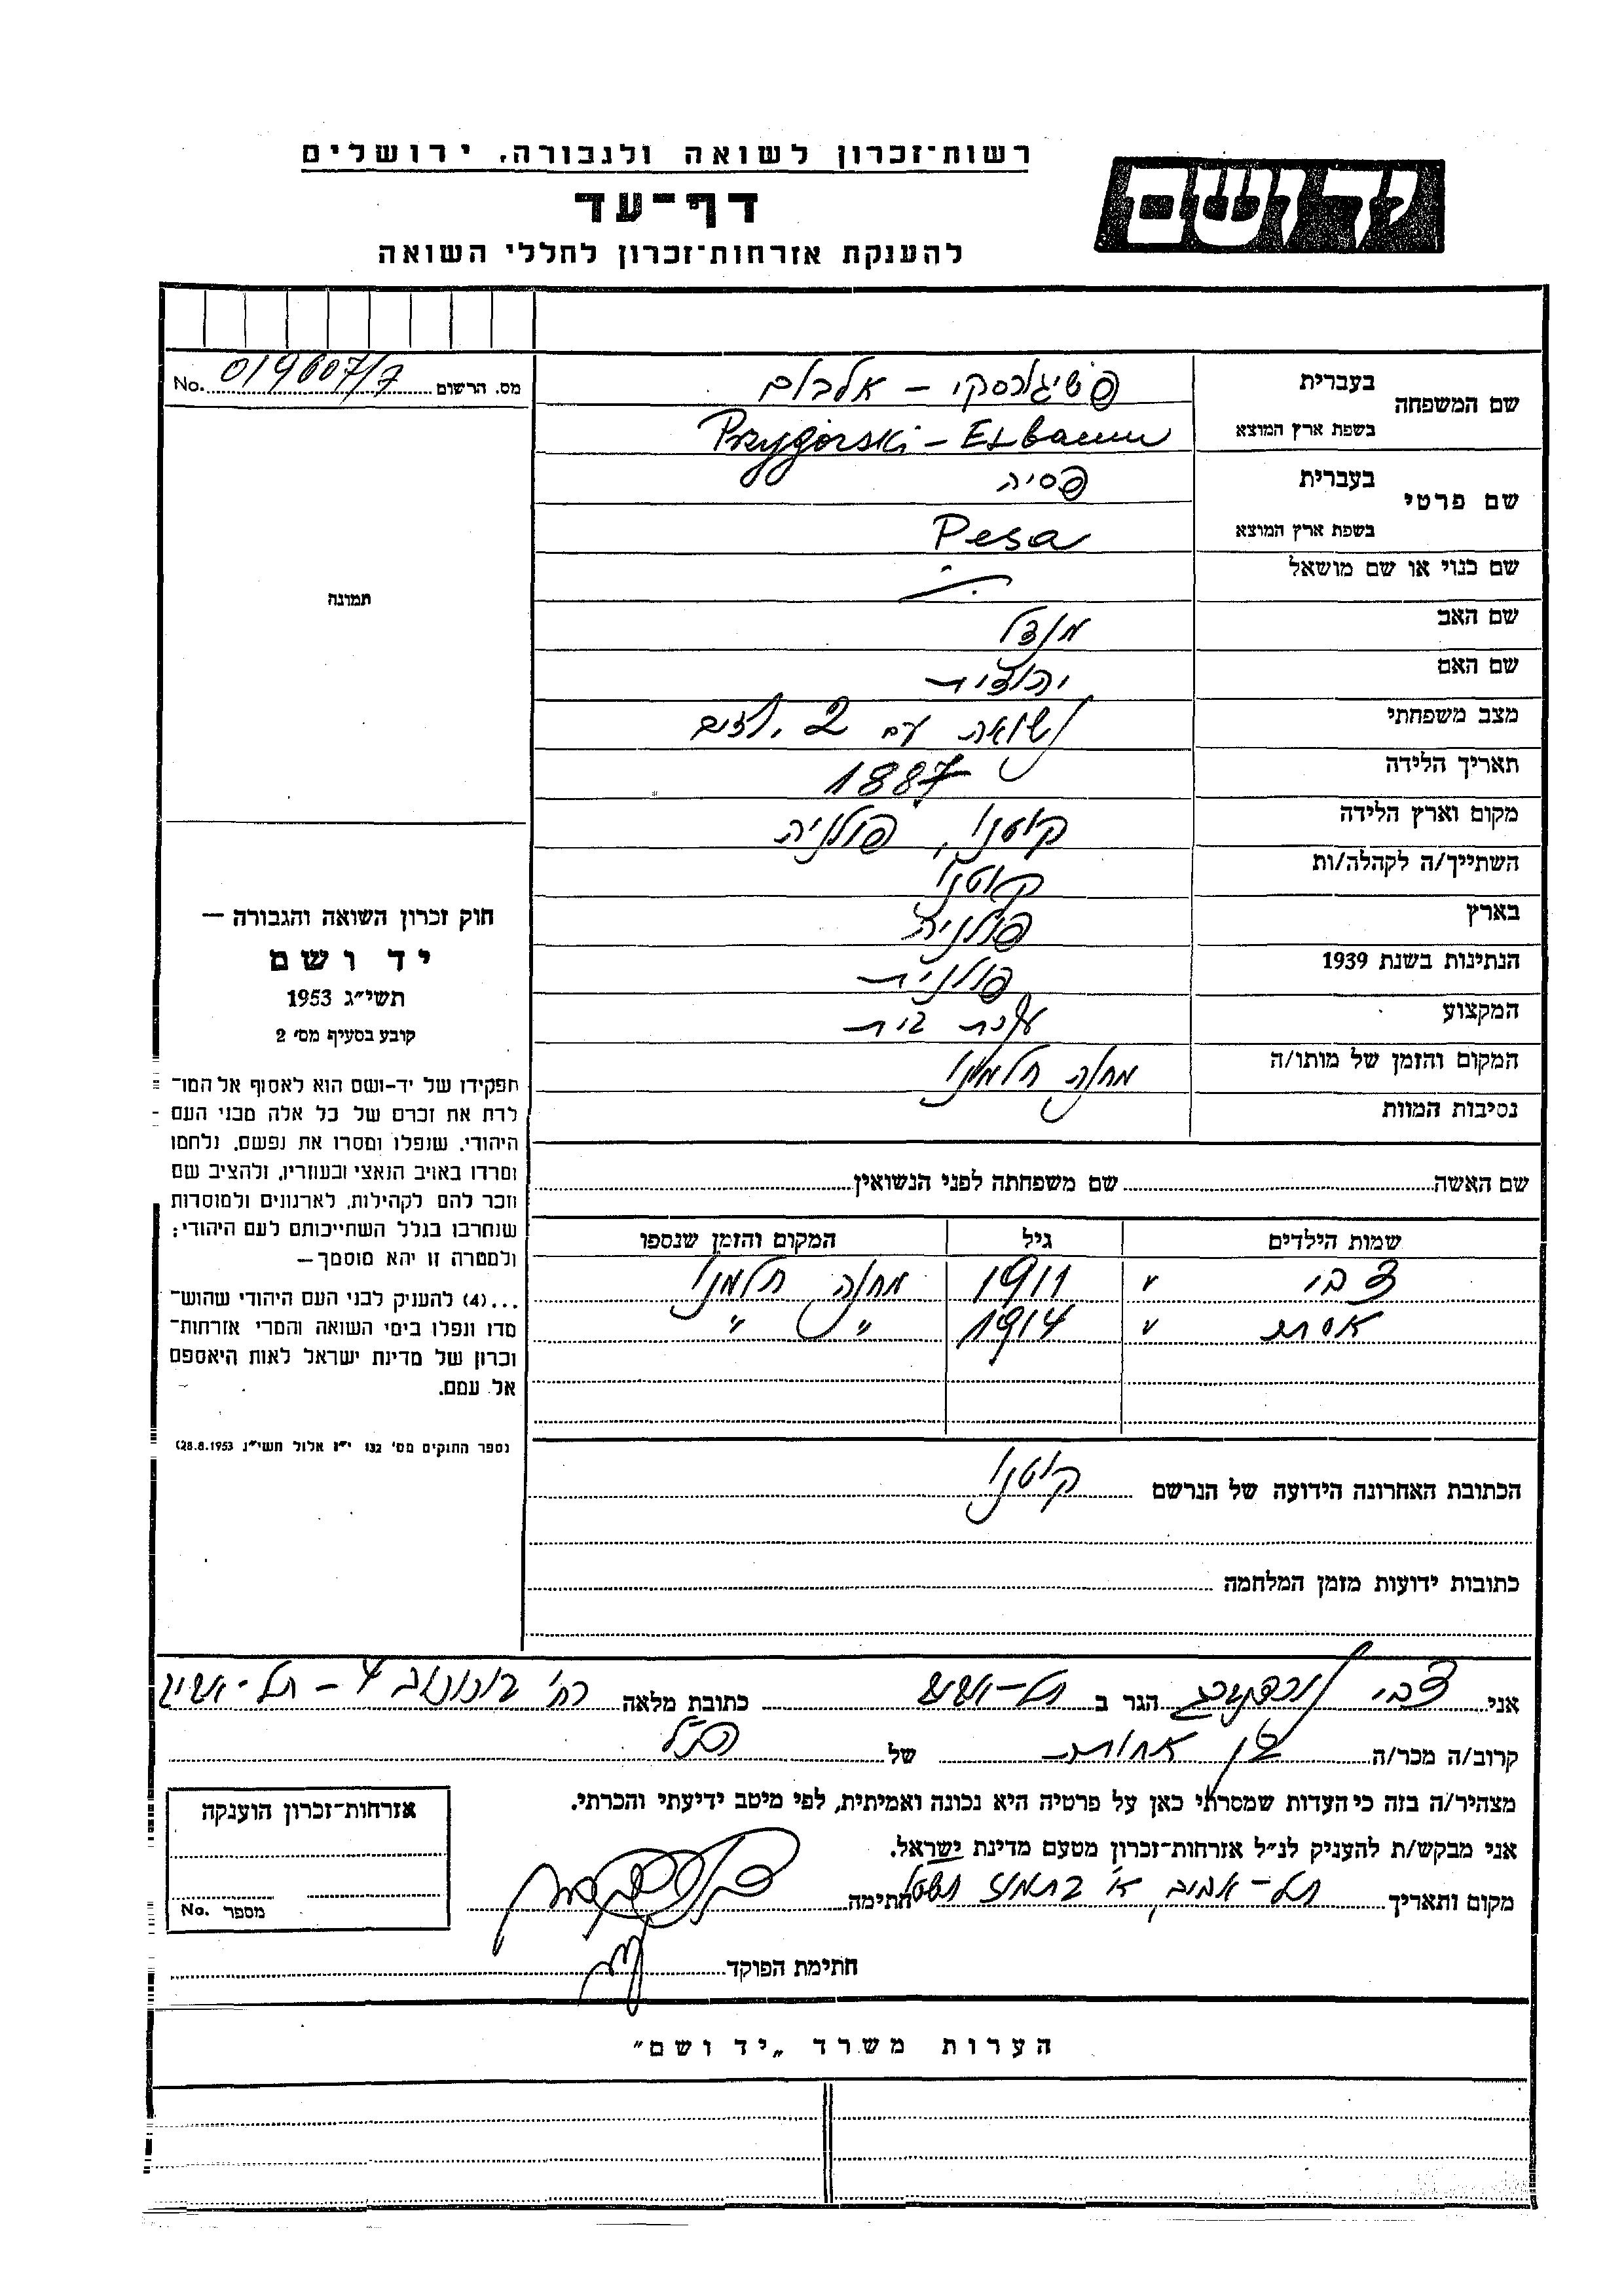 רשות־זכרון לשואה ולגבורה, ירושלים
יד ושם
דף־עד
להענקת אזרחות־זכרון לחללי השואה
מס. הרשום No. 019607/7
שם המשפחה בעברית פשיגורסקי – אלבוים
בשפת ארץ המוצא Przygórski – Elbaum
שם פרטי בעברית פסיה
בשפת ארץ המוצא Pesa
שם כנוי או שם מושאל
שם האב מנדל
שם האם יהודית
מצב משפחתי נשואה עם 2 ילדים
תאריך הלידה 1887
מקום וארץ הלידה קוטנו, פולניה
השתייך/ה לקהלה/ות קוטנו
בארץ פולניה
הנתינות בשנת 1939 פולנית
המקצוע עקרת בית
המקום והזמן של מותו/ה מחנה חלמנו
נסיבות המוות
תמונה
חוק זכרון השואה והגבורה —
יד ושם
תשי״ג 1953
קובע בסעיף מס׳ 2
תפקידו של יד-ושם הוא לאסוף אל המו־
לדת את זכרם של כל אלה מבני העם
היהודי, שנפלו ומסרו את נפשם, נלחמו
ומרדו באויב הנאצי ובעוזריו, ולהציב שם
וזכר להם לקהילות, לארגונים ולמוסדות
שנחרבו בגלל השתייכותם לעם היהודי;
ולמטרה זו יהא מוסמך—
...(4) להעניק לבני העם היהודי שהוש־
מדו ונפלו בימי השואה והמרי אזרחות־
זכרון של מדינת ישראל לאות היאספם
אל עמם.
(ספר החוקים מס׳ 132 י״ז אלול תשי״ג 28.8.1953)
שם האשה שם משפחתה לפני הנשואין
שמות הילדים גיל המקום והזמן שנספו
צבי 1911 מחנה חלמנו
אסתר 1914 ״ ״
הכתובת האחרונה הידועה של הנרשם קוטנו
כתובות ידועות מזמן המלחמה
אני צבי הגר ב כתובת מלאה רח׳ 4 –
קרוב/ה מכר/ה בן אחות של הנ״ל
מצהיר/ה בזה כי העדות שמסרתי כאן על פרטיה היא נכונה ואמיתית, לפי מיטב ידיעתי והכרתי.
אני מבקש/ת להעניק לנ״ל אזרחות־זכרון מטעם מדינת ישראל.
מקום ותאריך תל-אביב א׳ בתמוז חתימה
חתימת הפוקד
אזרחות־זכרון הוענקה
מספר No.
הערות משרד „יד ושם״